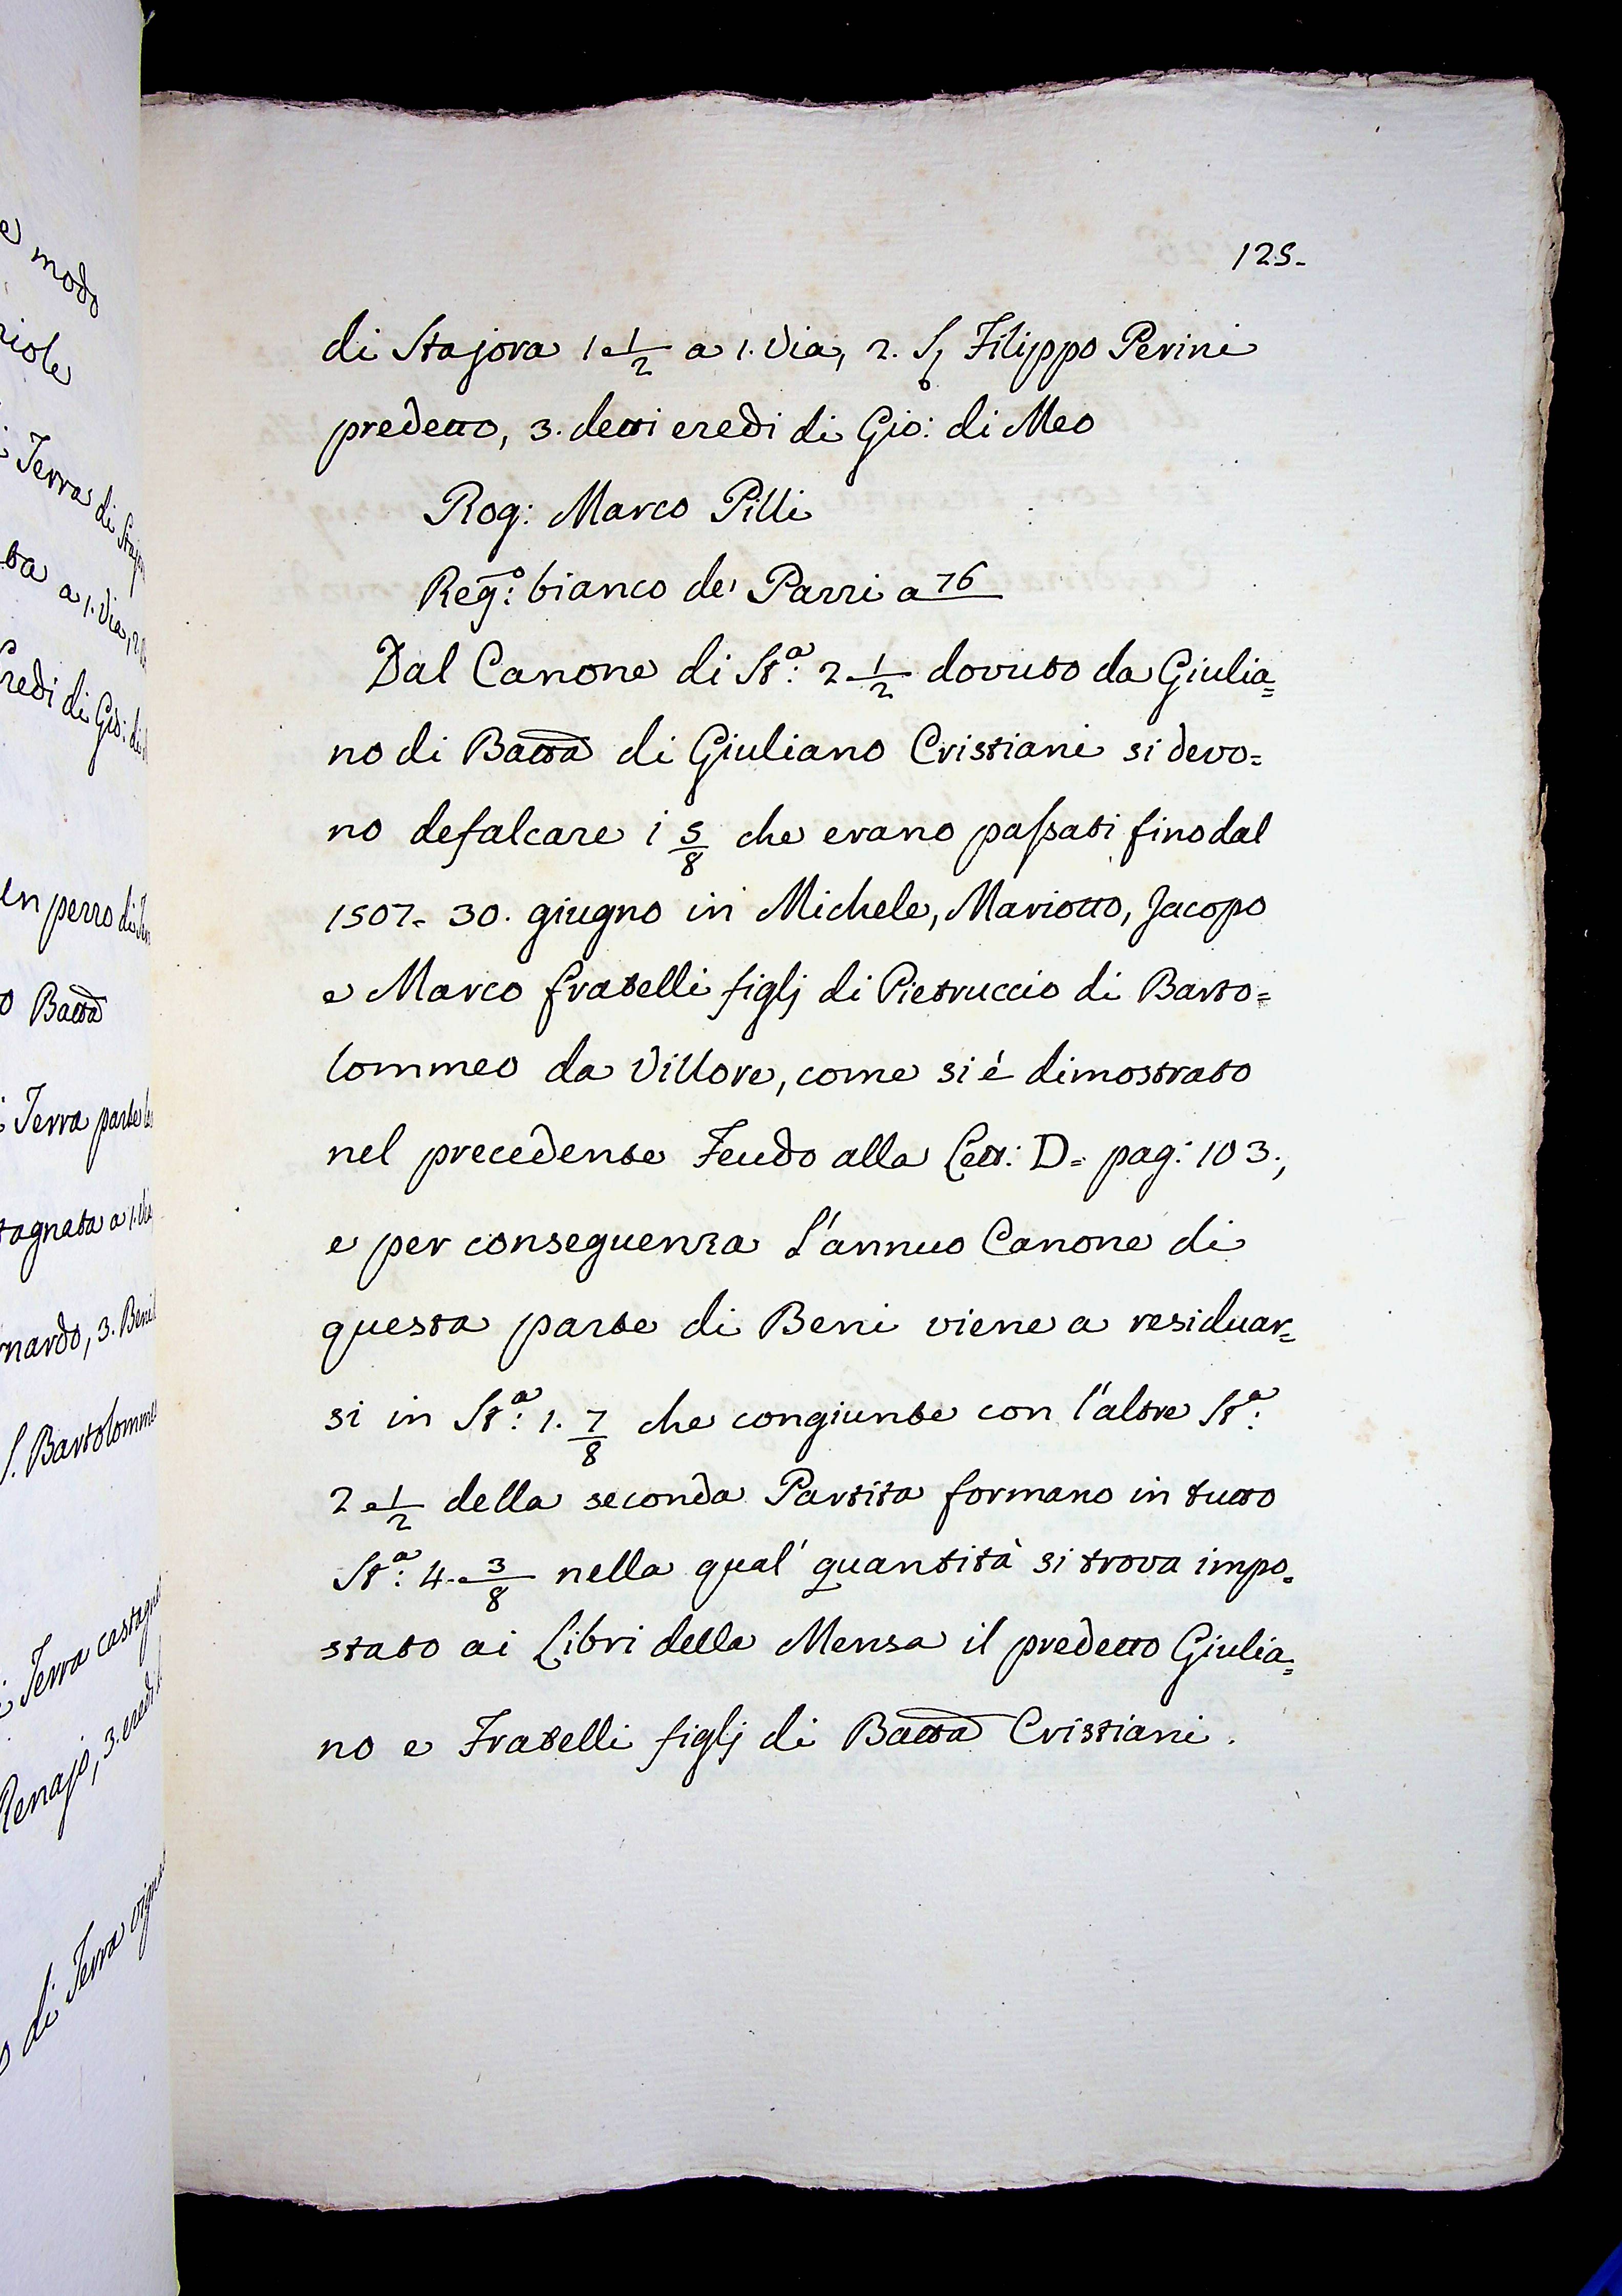 e modo
riole
i Terra di Staj
ta a 1. Via, 2
redi di Gio: di
un pezzo di
o Batta
i Terra parte
tagnata a 1. Via
rnardo, 3. Beni
S. Bartolomme
i Terra castagna
Renajo, 3. eredi
o di Terra vigna
125.
di Stajora 1 e 1/2 a 1. Via, 2. S. Filippo Perini
predetto, 3. detti eredi di Gio: di Meo
Rog: Marco Pilli
Reg:º bianco de' Pazzi a 76
Dal Canone di St:ª 2 1/2 dovuto da Giulia=
no di Batta di Giuliano Cristiani si devo=
no defalcare i 5/8 che erano passati fino dal
1507. 30. giugno in Michele, Mariotto, Jacopo
e Marco fratelli figlj di Pietruccio di Barto=
lommeo da Villore, come si è dimostrato
nel precedente Feudo alla Lett: D. pag: 103.,
e per conseguenza l'annuo Canone di
questa parte di Beni viene a residuar=
si in St:ª 1. 7/8 che congiunte con l'altre St:ª
2 e 1/2 della seconda Partita formano in tutto
St:ª 4. e 3/8 nella qual' quantità si trova impo=
stato ai Libri della Mensa il predetto Giulia=
no e Fratelli figlj di Batta Cristiani.